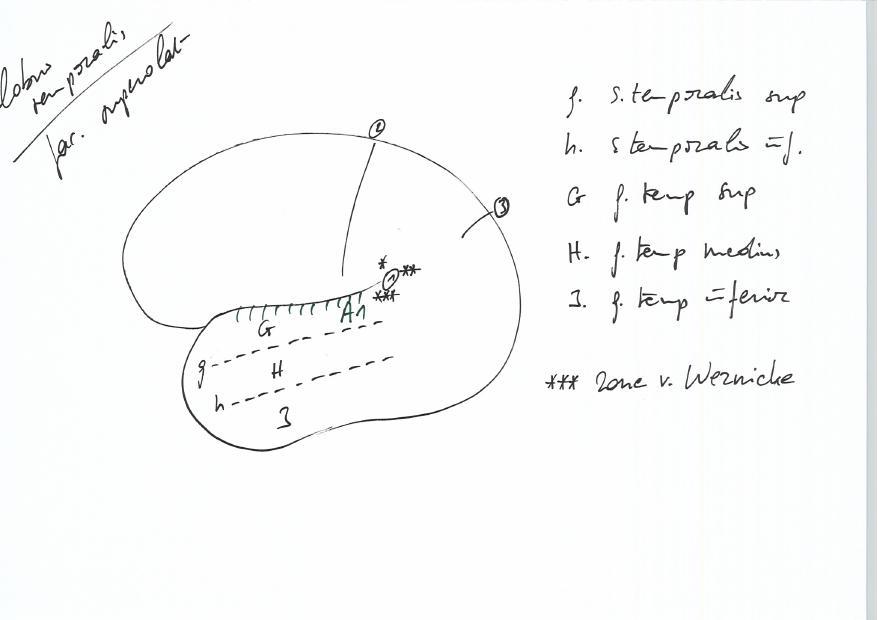 lobus
temporalis
far. superolat
2
3
*
1 **
***
A1
G
g
H
h
J
g. s. temporalis sup
h. s temporalis inf.
G g. temp sup
H. g. temp medius
J. g. temp inferior
*** zone v. Wernicke